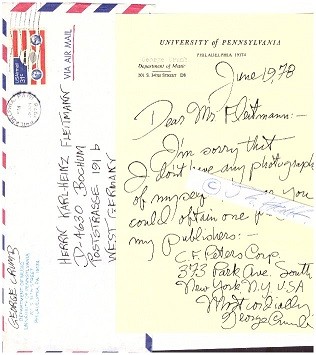 UNIVERSITY of PENNSYLVANIA
PHILADELPHIA 19174
Department of Music
201 S. 34TH STREET D8
June 1978
Dear Mr. Fleitmann:—
I'm sorry that
I don't have any photographs
of myself you
could obtain one
my publishers:—
C.F. Peters Corp.
373 Park Ave. South
New York N.Y. USA
Most cordially
George Crumb
VIA AIR MAIL
HERRN KARLHEINZ FLEITMANN
D-4630 BOCHUM
POSTSTRASSE 191 b
WEST GERMANY
GEORGE CRUMB
USAirmail
31c